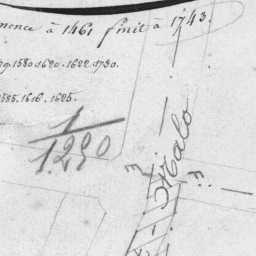 mence à 1461 finit à 1743.
1580.1620.1622.1730.
1585.1616.1625.
1
1250
Malo